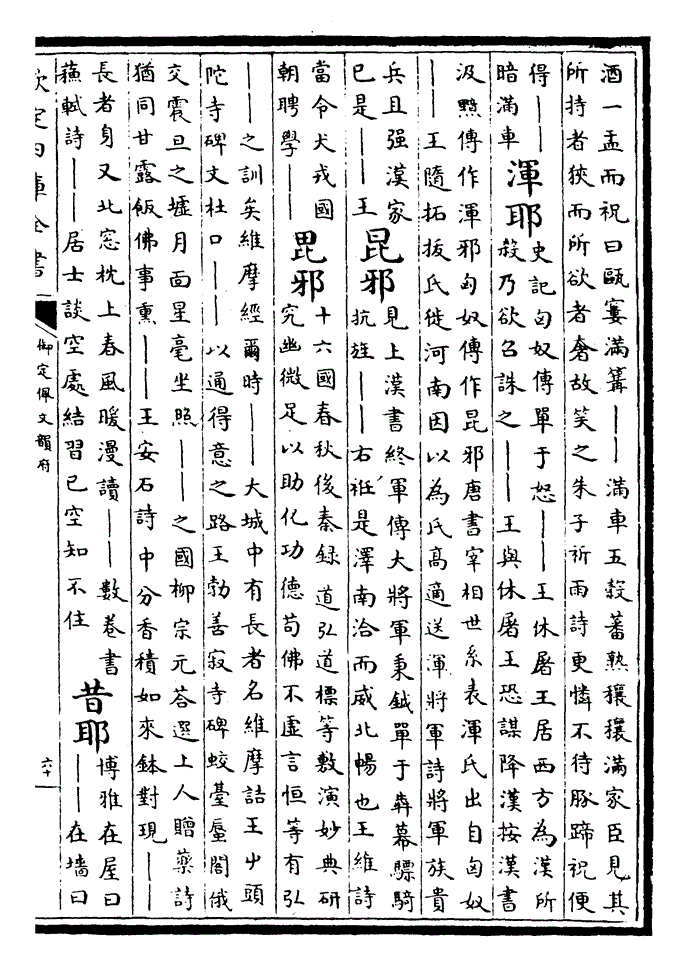 酒一盂而祝曰甌窶滿篝——滿車五穀蕃熟穰穰滿家臣見其
所持者狹而所欲者奢故笑之朱子祈雨詩更憐不待豚蹄祝便
得——
暗滿車
渾耶
史記匈奴傳單于怒——王休屠王居西方為漢所
殺乃欲召誅之——王與休屠王恐謀降漢按漢書
汲黯傳作渾邪匈奴傳作昆邪唐書宰相世系表渾氏出自匈奴
——王隨拓拔氏徙河南因以為氏高適送渾將軍詩將軍族貴
兵且强漢家
已是——王
昆邪
見上漢書終軍傳大將軍秉鉞單于犇幕驃騎
抗旌——右袵是澤南洽而威北暢也王維詩
當令犬戎國
朝聘學——
毘邪
十六國春秋後秦録道弘道標等敷演妙典研
究幽微足以助化功德苟佛不虛言恒等有弘
——之訓矣維摩經爾時——大城中有長者名維摩詰王屮頭
陀寺碑文杜口——以通得意之路王勃善寂寺碑蛟臺蜃閣俄
交震旦之墟月面星毫坐照——之國柳宗元荅選上人贈藥詩
猶同甘露飯佛事熏——王安石詩中分香積如來鉢對現——
長者身又北窓枕上春風暖漫讀——數卷書
蘇軾詩——居士談空處結習已空知不住
昔耶
博雅在屋曰
——在墙曰
欽定四庫全書
御定佩文韻府
六十